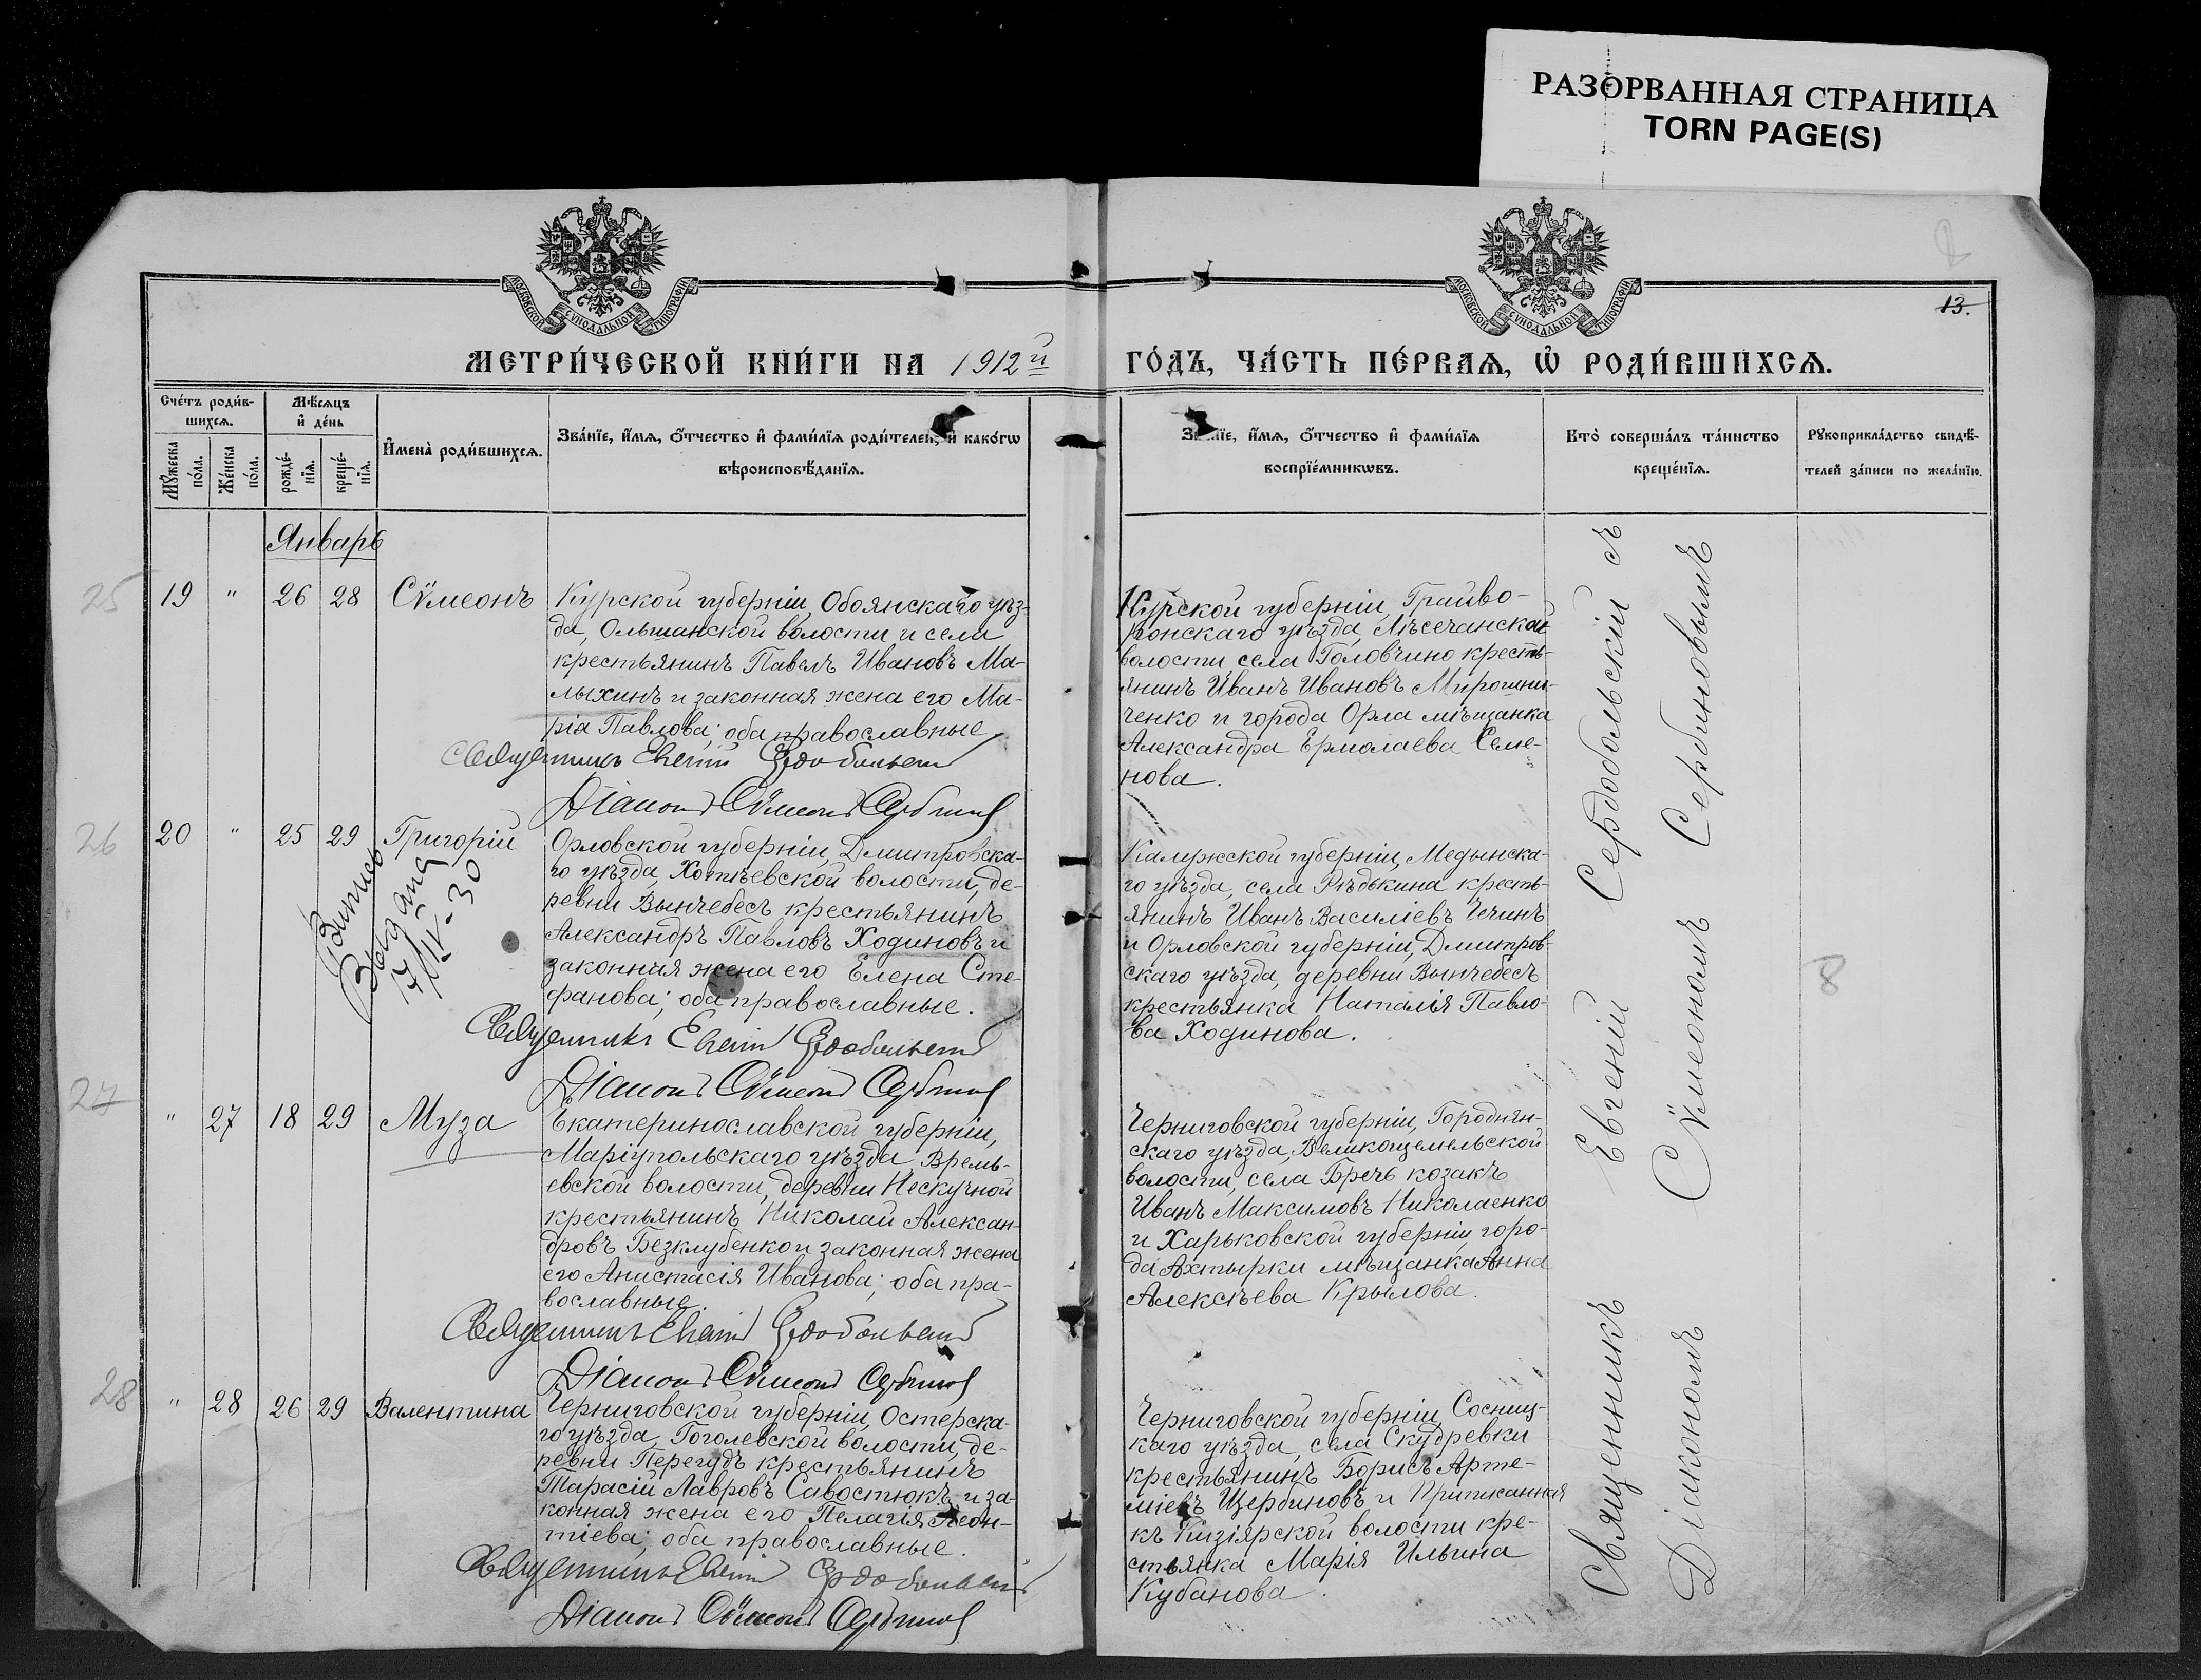 РАЗОРВАННАЯ СТРАНИЦА
TORN PAGE(S)
МОСКОВСКОЙ СѴНОДАЛЬНОЙ ТИПОГРАФІИ
МОСКОВСКОЙ СѴНОДАЛЬНОЙ ТИПОГРАФІИ
13.
МЕТРИ́ЧЕСКОЙ КНИ́ГИ НА 1912й
ГО́ДЪ, ЧА́СТЬ ПЕ́РВАѦ, Ѡ РОДИ́ВШИХСѦ.
Сче́тъ роди́в-
шихсѧ.
Мꙋ́жеска по́ла.
Же́нска по́ла.
Мѣ́сѧцъ
и҆ де́нь
рожде́-
нїѧ.
креще́-
нїѧ.
И҆мена̀ роди́вшихсѧ.
Зва́нїе, и҆́мѧ, ѻ҆́тчество и҆ фами́лїѧ роди́телей, и҆ како́гѡ
вѣроисповѣ́данїѧ.
Зва́нїе, и҆́мѧ, ѻ҆́тчество и҆ фами́лїѧ
воспрїе́мникѡвъ.
Кто̀ соверша́лъ та́инство
креще́нїѧ.
Рꙋкоприкла́дство свидѣ́-
телей за́писи по жела́нїю.
Январь
25
19 " 26 28 Сѵмеонъ
Курской губерніи, Обоянскаго уѣз-
да, Ольшанской волости и села
крестьянинъ Павелъ Ивановъ Ма-
лыхинъ и законная жена его Ма-
рія Павлова; оба православные.
Священникъ Евгеній Сердобольскій
Діаконъ Сѵмеонъ Сербиновъ
Курской губерніи, Грайво-
ронскаго уѣзда, Лѣсечанской
волости села Головчино кресть-
янинъ Иванъ Ивановъ Мирошни-
ченко и города Орла мѣщанка
Александра Ермолаева Семе-
нова.
26
20 " 25 29 Григорій
Выдана
Орловской губерніи, Дмитровска-
го уѣзда, Хотѣевской волости, де-
ревни Вынчебесъ крестьянинъ
Александръ Павловъ Ходиновъ и
законная жена его Елена Сте-
фанова; оба православные.
Священникъ Евгеній Сердобольскій
Діаконъ Сѵмеонъ Сербиновъ
Калужской губерніи, Медынска-
го уѣзда, села Рѣдькина кресть-
янинъ Иванъ Василіевъ Чечинъ
и Орловской губерніи, Дмитров-
скаго уѣзда, деревни Вынчебесъ
крестьянка Наталія Павло-
ва Ходинова.
8
27
" 27 18 29 Муза
Екатеринославской губерніи,
Маріупольскаго уѣзда, Времь-
евской волости, деревни Нескучной
крестьянинъ Николай Алексан-
дровъ Безклубенко и законная жена
его Анастасія Иванова; оба пра-
вославные.
Священникъ Евгеній Сердобольскій
Діаконъ Сѵмеонъ Сербиновъ
Черниговской губерніи, Городнян-
скаго уѣзда, Великощемельской
волости, села Бречь козакъ
Иванъ Максимовъ Николаенко
и Харьковской губерніи, горо-
да Ахтырки мѣщанка Анна
Алексѣева Крылова.
28
" 28 26 29 Валентина
Черниговской губерніи, Остерска-
го уѣзда, Гоголевской волости, де-
ревни Перегудъ крестьянинъ
Тарасій Лавровъ Савостюкъ и за-
конная жена его Пелагія Леон-
тіева; оба православные.
Священникъ Евгеній Сердобольскій
Діаконъ Сѵмеонъ Сербиновъ
Черниговской губерніи, Сосниц-
каго уѣзда, села Скудревки
крестьянинъ Борисъ Арте-
міевъ Щербиновъ и Приписанная
къ Кизіярской волости кре-
стьянка Марія Ильина
Кубанова.
Священникъ Евгеній Сердобольскій съ
Діакономъ Сѵмеономъ Сербиновымъ